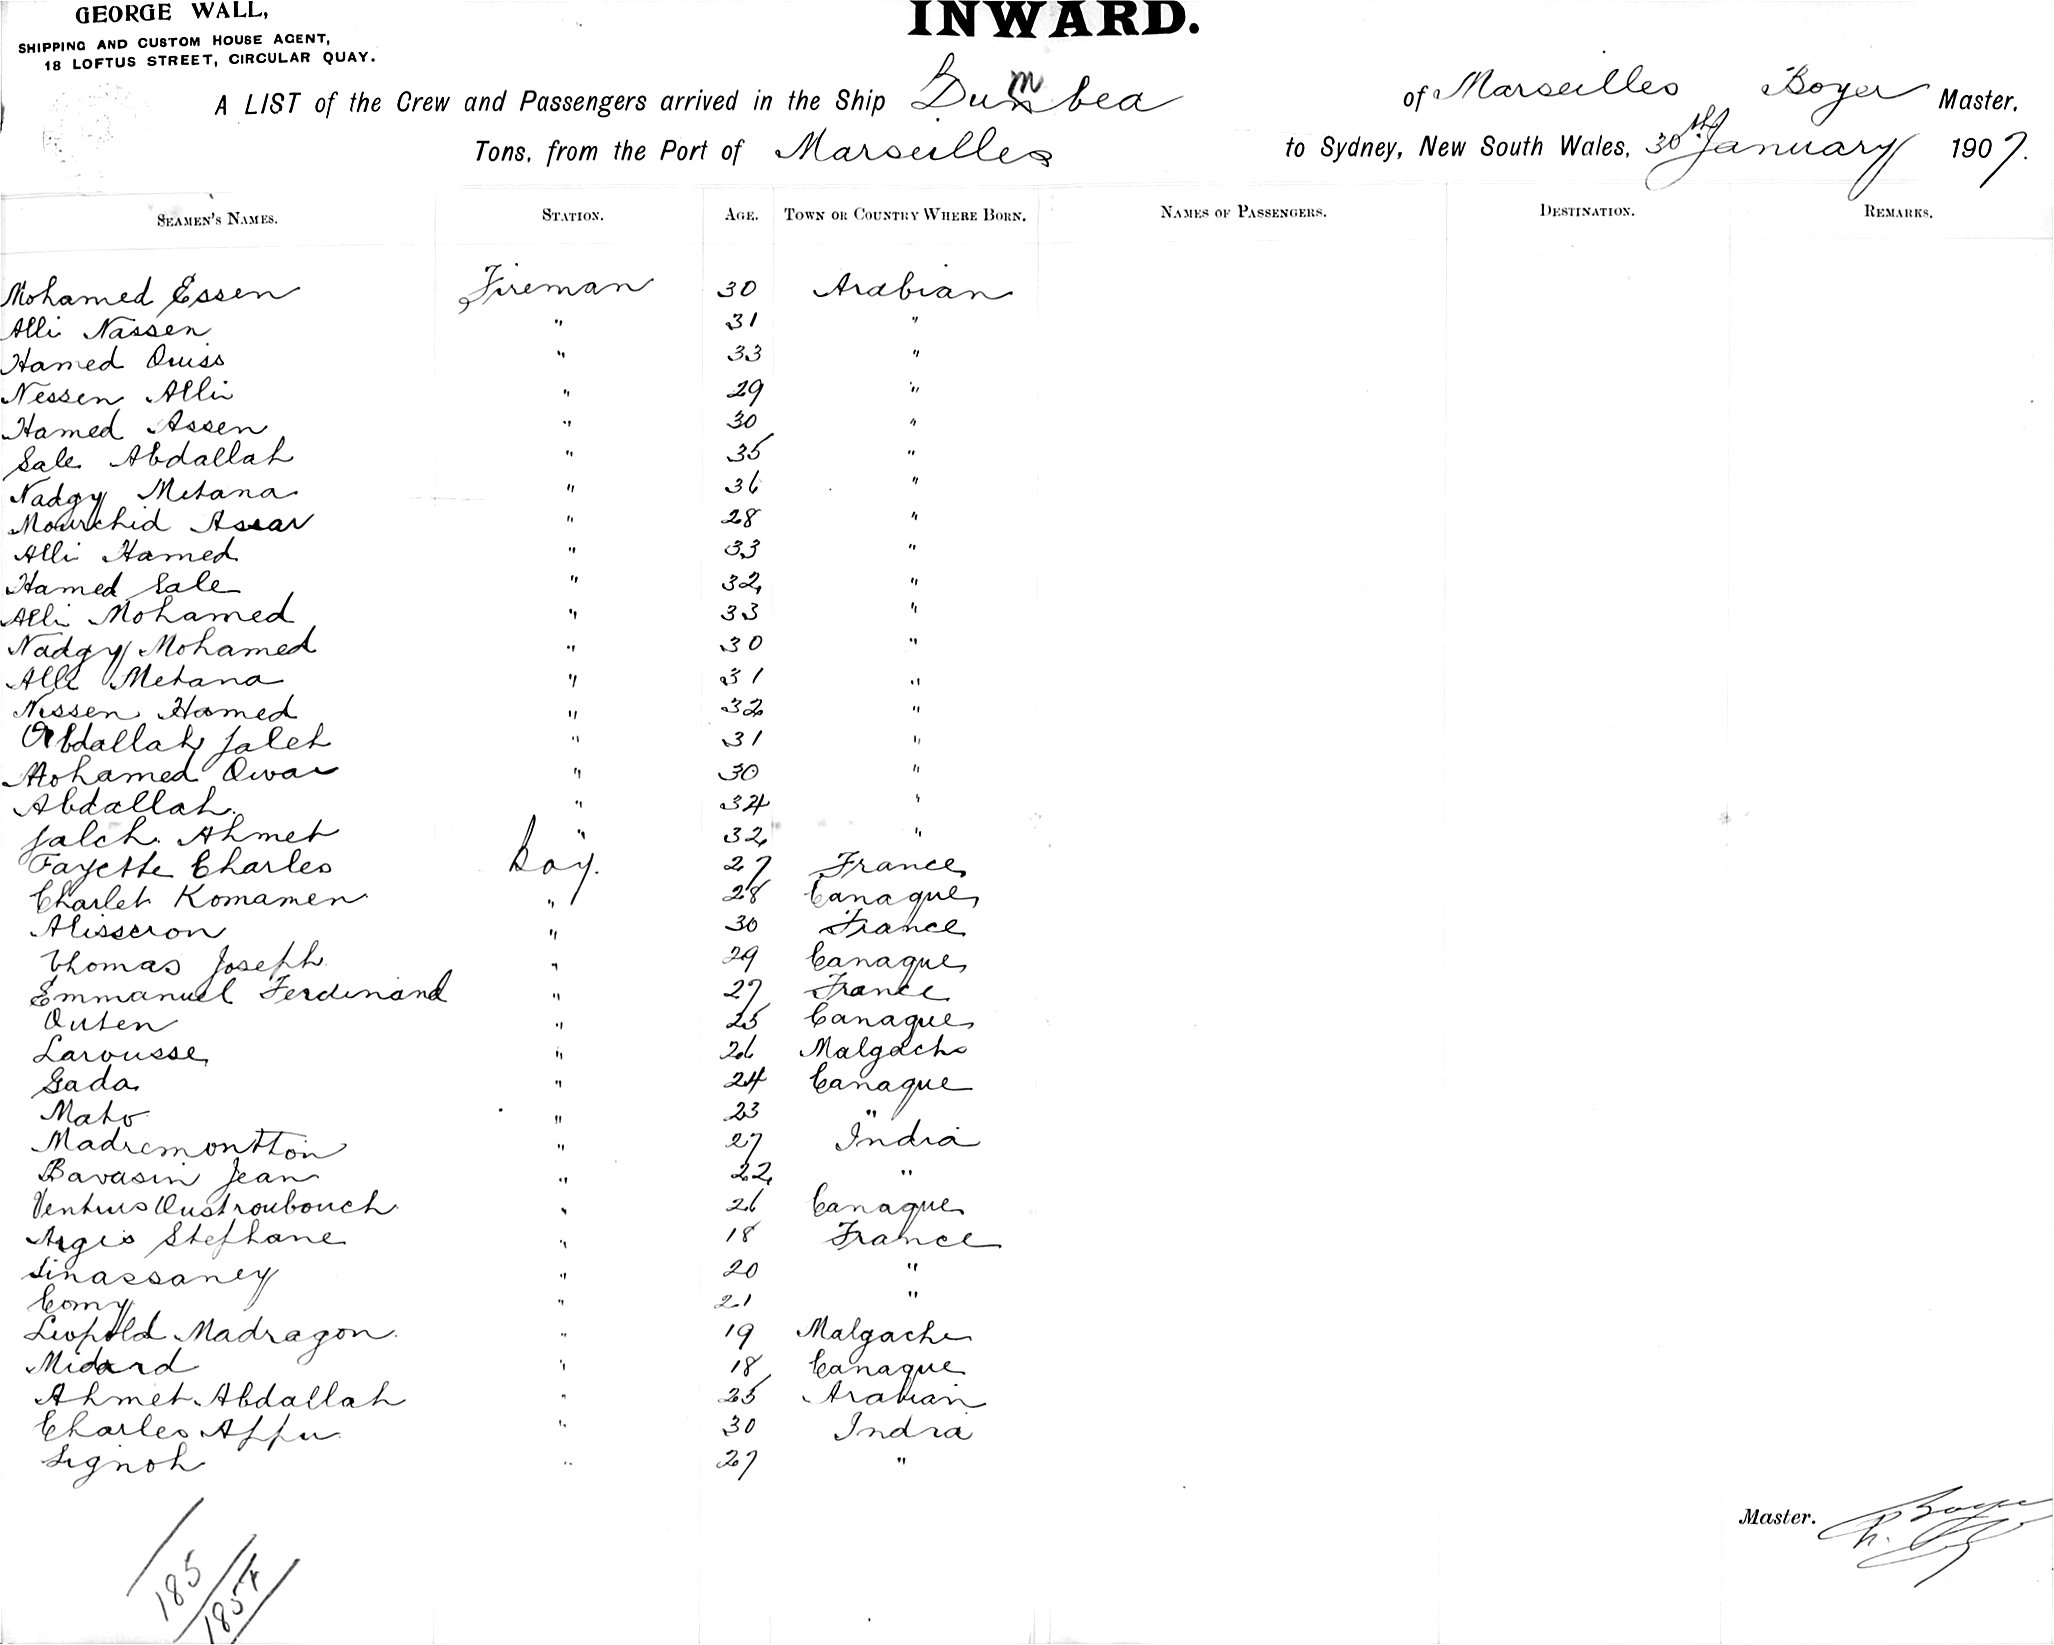 GEORGE WALL,
SHIPPING AND CUSTOM HOUSE AGENT,
18 LOFTUS STREET, CIRCULAR QUAY.
INWARD.
A LIST of the Crew and Passengers arrived in the Ship Dumbea of Marseilles Boyer Master,
Tons, from the Port of Marseilles to Sydney, New South Wales, 30th January 1907.
SEAMEN'S NAMES. STATION. AGE. TOWN OR COUNTRY WHERE BORN. NAMES OF PASSENGERS. DESTINATION. REMARKS.
Mohamed Essen Fireman 30 Arabian
Alli Nassen " 31 "
Hamed Quiss " 33 "
Nessen Alli " 29 "
Hamed Assen " 30 "
Sale Abdallah " 35 "
Nadgy Metana " 36 "
Mourchid Assar " 28 "
Alli Hamed " 33 "
Hamed Sale " 32 "
Alli Mohamed " 33 "
Nadgy Mohamed " 30 "
Alli Metana " 31 "
Nessen Hamed " 32 "
Abdallah Saleh " 31 "
Mohamed " 30 "
Abdallah " 34 "
Saleh Ahmet " 32 "
Fayette Charles Boy. 27 France
Charlet Komamen " 28 Canaque
Alisseron " 30 France
Thomas Joseph " 29 Canaque
Emmanuel Ferdinand " 27 France
Outen " 25 Canaque
Larousse " 26 Malgache
Gada " 24 Canaque
Mato " 23 "
Madremontton " 27 India
Bavasin Jean " 22 "
Oustroubouch " 26 Canaque
Argis Stephane " 18 France
Sinassaney " 20 "
Comy " 21 "
Leopold Madragon " 19 Malgache
Midard " 18 Canaque
Ahmet Abdallah " 25 Arabian
Charles Appu " 30 India
Signoh " 27 "
Master. Boyer
185
1854